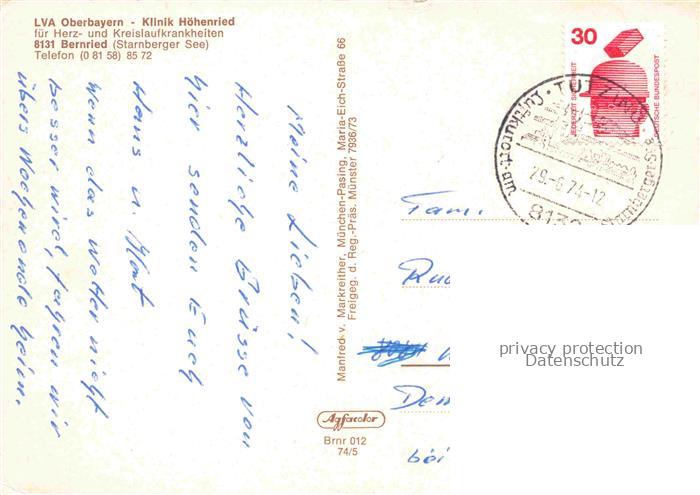 LVA Oberbayern - Klinik Höhenried
für Herz- und Kreislaufkrankheiten
8131 Bernried (Starnberger See)
Telefon (0 81 58) 85 72
Meine Lieben!
Herzliche Grüsse von
hier senden Euch
Hans u.
Wenn das Wetter nicht
besser wird, fahren wir
übers Wochenende heim.
Manfred v. Markreither, München-Pasing, Maria-Eich-Straße 66
Freigeg. d. Reg.-Präs. Münster 7936/73
Agfacolor
Brnr 012
74/5
30
JEDERZEIT SICHERHEIT
DEUTSCHE BUNDESPOST
TUTZING
Luftkurort am
Starnberger See
29.-6.74-12
813
Fam.
bei
privacy protection
Datenschutz